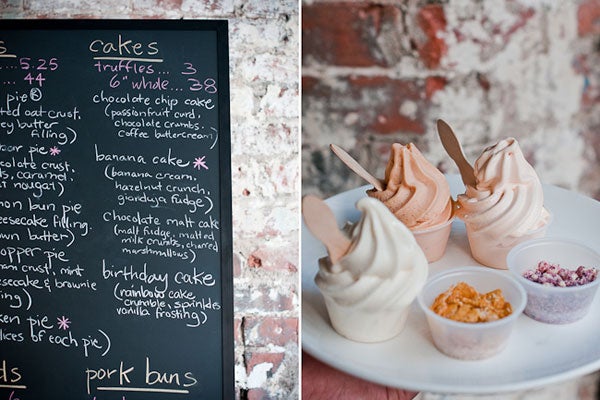 s
5.25
44
pie ®
oat crust,
ey butter
filling)
pie *
crust,
caramel,
nougat)
bon pie
cheesecake filling
wn butter)
opper pie
crust, mint
cheesecake & brownie
ing)
ken pie *
slices of each pie)
ds
cakes
truffles... 3
6" whole... 38
chocolate chip cake
(passionfruit curd,
chocolate crumbs,
coffee buttercream)
banana cake *
(banana cream,
hazelnut crunch,
gianduja fudge)
chocolate malt cake
(malt fudge, malted
milk crumbs, charred
marshmallows)
birthday cake
(rainbow cake
crumble, sprinkles
vanilla frosting)
pork buns